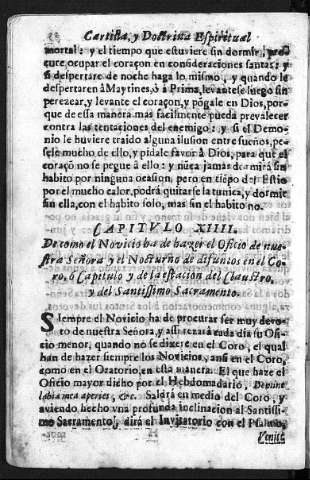 Cartilla, y Doctrina Espiritual
mortal: y el tiempo que estuviere sin dormir, pro
cure ocupar el coraçon en consideraciones santas: y
si despertare de noche haga lo mismo, y quando le
despertaren à Maytines, ò à Prima, levantese luego sin
perezear, y levante el coraçon, y pógale en Dios, por-
que de essa manera mas facilmente pueda prevalecer
contra las tentaciones del enemigo: y si el Demo-
nio le huviere traido alguna ilusion entre sueños, pe-
sele mucho de ello, y pidale favor à Dios, para que el
coraçó no se pegue à ello: y núca jamas dormirá sin
habito por ninguna ocasion, pero en tiépo de Estio
por el mucho calor, podrá quitarse la tunica, y dormir
sin ella, con el habito solo, mas sin el habito no.
CAPITVLO XIIII.
De como el Novicio ha de hazer el Oficio de nue-
stra Señora y el Nocturno de difuntos en el Co-
ro, ò Capitulo y de la estacion del Claustro,
y del Santissimo Sacramento.
Siempre el Novicio ha de procurar ser muy devo-
to de nuestra Señora, y assi rezará cada dia su Ofi-
cio menor, quando no se dixere en el Coro, el qual
han de hazer siempre los Novicios, ansi en el Coro,
como en el Oratorio, en esta manera. El que haze el
Oficio mayor dicho por el Hebdomadario, Domine
labia mea aperies, &c. Saldrá en medio del Coro, y
aviendo hecho vna profunda inclinacion al Santissi-
mo Sacramento, dirá el Invitatorio con el Psalmo,
Venite